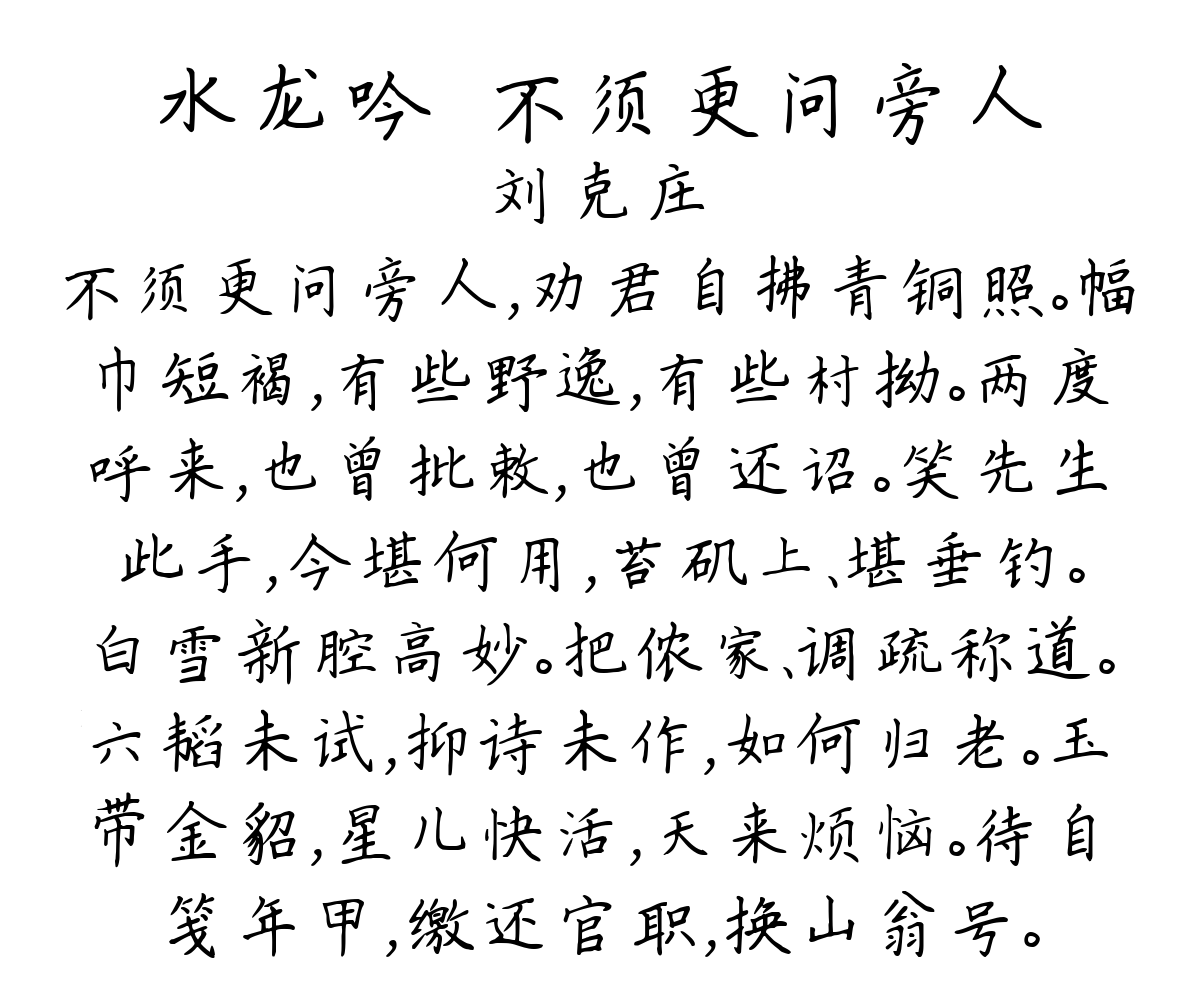 水龙吟 不须更问旁人
刘克庄
不须更问旁人,劝君自拂青铜照。幅
巾短褐,有些野逸,有些村拗。两度
呼来,也曾批敕,也曾还诏。笑先生
此手,今堪何用,苔矶上、堪垂钓。
白雪新腔高妙。把侬家、调疏称道。
六韬未试,抑诗未作,如何归老。玉
带金貂,星儿快活,天来烦恼。待自
笺年甲,缴还官职,换山翁号。